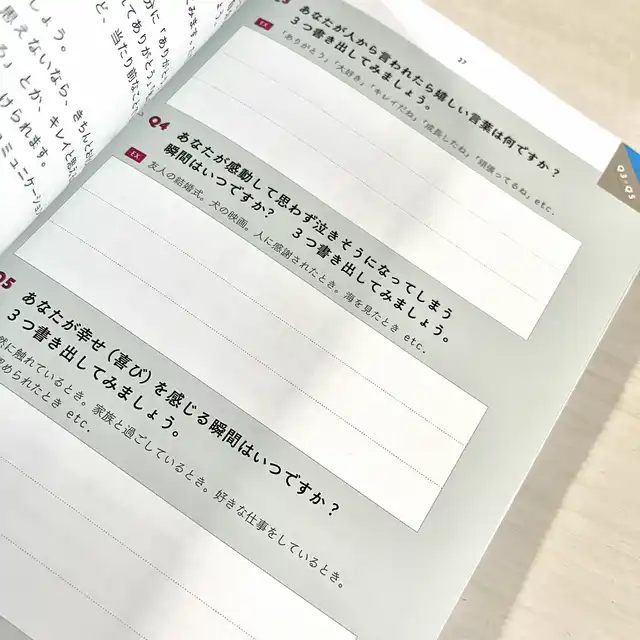 分に「ありが
てありがとう
と、当たり前
しょう。
思えないなら、きちんと
る」とか、キレイと思
けられます。
コミュニケーション
27
Q2-Q5
あなたが人から言われたら嬉しい言葉は何ですか？
3つ書き出してみましょう。
EX
「ありがとう」「大好き」「キレイだね」「成長したね」「頑張ってるね」etc.
Q4
あなたが感動して思わず泣きそうになってしまう
瞬間はいつですか？ 3つ書き出してみましょう。
EX
友人の結婚式。犬の映画。人に感謝されたとき。海を見たとき etc.
Q5
あなたが幸せ（喜び）を感じる瞬間はいつですか？
3つ書き出してみましょう。
然に触れているとき。家族と過ごしているとき。好きな仕事をしているとき。
められたとき etc.